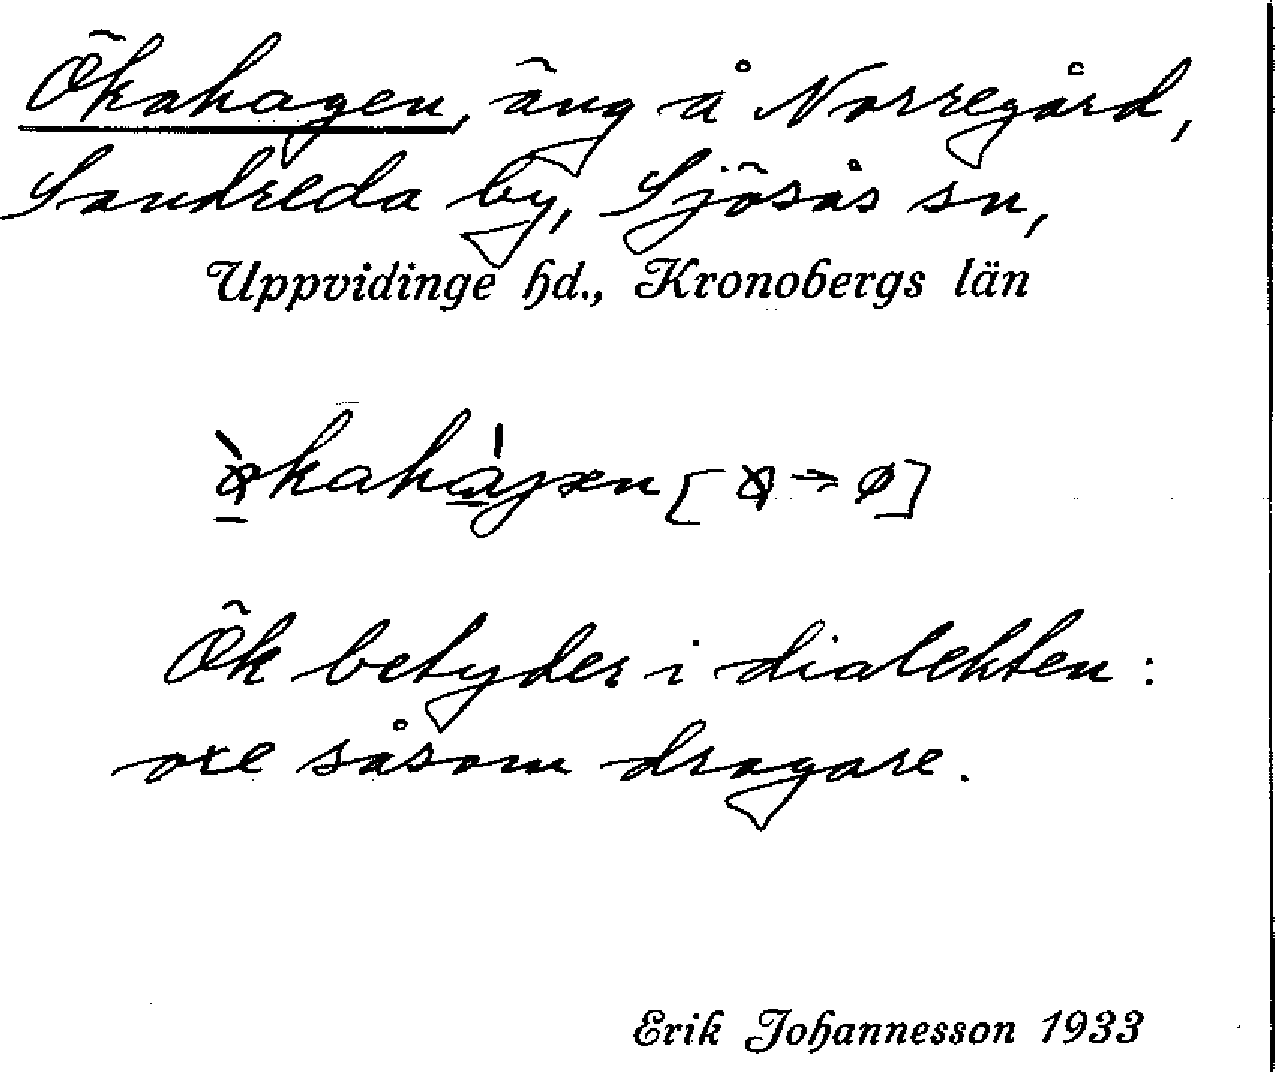 Ökahagen, äng å Norregård,
Sandreda by, Sjösås sn,
Uppvidinge hd., Kronobergs län
Ök betyder i dialekten:
oxe såsom dragare.
Erik Johannesson 1933